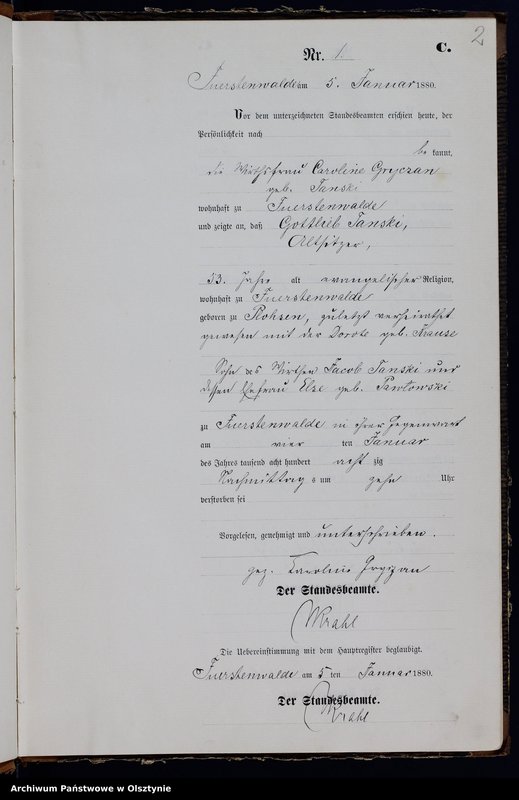 2
Nr. 1.
C.
Fuerstenwalde am 5. Januar 1880.
Vor dem unterzeichneten Standesbeamten erschien heute, der
Persönlichkeit nach
be kannt,
die Wirthsfrau Caroline Gryczan
geb. Tanski
wohnhaft zu Fuerstenwalde
und zeigte an, daß Gottlieb Tanski,
Altsitzer,
53. Jahre alt evangelischer Religion,
wohnhaft zu Fuerstenwalde
geboren zu Rohsen, zuletzt verheirathet
gewesen mit der Dorote geb. Krause
Sohn des Wirthen Jacob Tanski und
dessen Ehefrau Else geb. Pawlowski
zu Fuerstenwalde in ihrer Gegenwart
am vier ten Januar
des Jahres tausend acht hundert acht zig
Nachmittag s um zehn Uhr
verstorben sei
Vorgelesen, genehmigt und unterschrieben.
gez. Karoline Gryzan
Der Standesbeamte.
Krahl
Die Uebereinstimmung mit dem Hauptregister beglaubigt.
Fuerstenwalde am 5 ten Januar 1880.
Der Standesbeamte.
Krahl
Archiwum Państwowe w Olsztynie